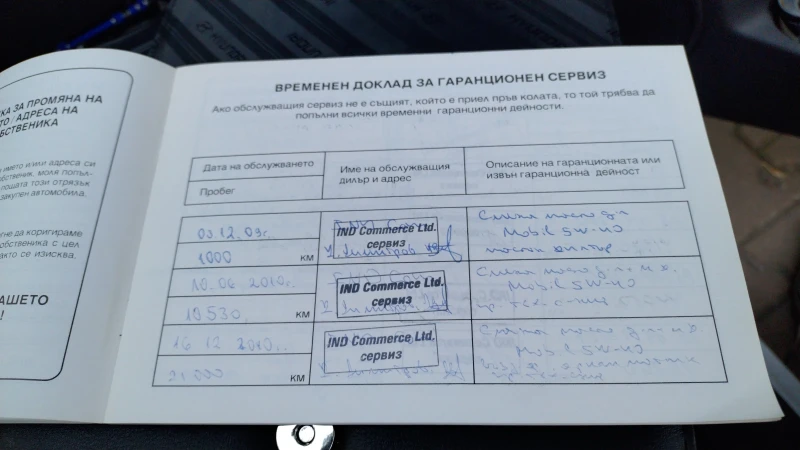 КА ЗА ПРОМЯНА НА
ТО/АДРЕСА НА
БСТВЕНИКА
името и/или адреса си
бственик, моля попъл-
пощата този отрязък
закупен автомобила.
гне да коригираме
обственика с цел
както се изисква.
АШЕТО
!
ВРЕМЕНЕН ДОКЛАД ЗА ГАРАНЦИОНЕН СЕРВИЗ
Ако обслужващия сервиз не е същият, който е приел пръв колата, то той трябва да
попълни всички временни гаранционни дейности.
Дата на обслужването
Пробег
Име на обслужващия
дилър и адрес
Описание на гаранционната или
извън гаранционна дейност
03.12.09г.
1000 КМ
IND Commerce Ltd.
сервиз
Смяна масло
Mobil 5W-40
маслен филтър
10.06 2010г.
10530 КМ
IND Commerce Ltd.
сервиз
Смяна масло
Mobil 5W-40
16 12 2010г.
21000 КМ
IND Commerce Ltd.
сервиз
Смяна масло
Mobil 5W-40